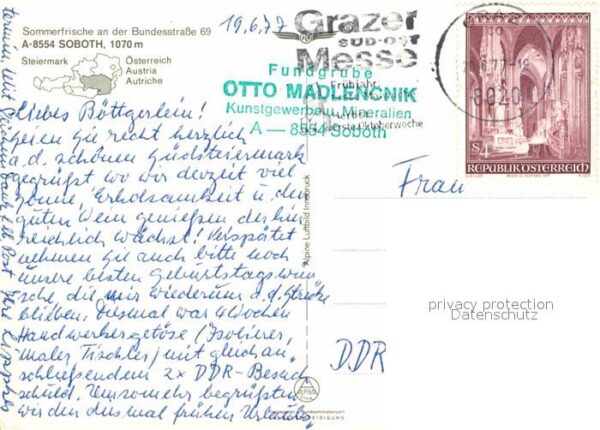 Sommerfrische an der Bundesstraße 69
A-8554 SOBOTH, 1070 m
Steiermark
Österreich
Austria
Autriche
19.6.77
Grazer
SÜD-OST
Messe
Frühjahr
Erste Oktoberwoche
Fundgrube
OTTO MADLENCNIK
Kunstgewerbe u. Mineralien
A — 8554 Soboth
20.6.77-18
8020
S4
REPUBLIK ÖSTERREICH
Liebes Böttgerlein!
Seien Sie recht herzlich
a. d. schönen Südsteiermark
gegrüßt wo wir derzeit viel
Sonne, Erholsamkeit u. den
guten Wein genießen der hier
reichlich wächst! Verspätet
nehmen Sie auch bitte noch
unsere besten Geburtstagswün
sche, die mir wiederum a. d. Strecke
blieben. Diesmal war 4 Wochen
Handwerkergetöse (Isolierer,
Maler, Tischler) mit gleich an
schließendem 2x DDR-Besuch
schuld. Umsomehr begrüßten
wir den diesmal frühen Urlaubs
termin. Mit
Post
Frau
DDR
Alpine Luftbild Innsbruck
privacy protection
Datenschutz